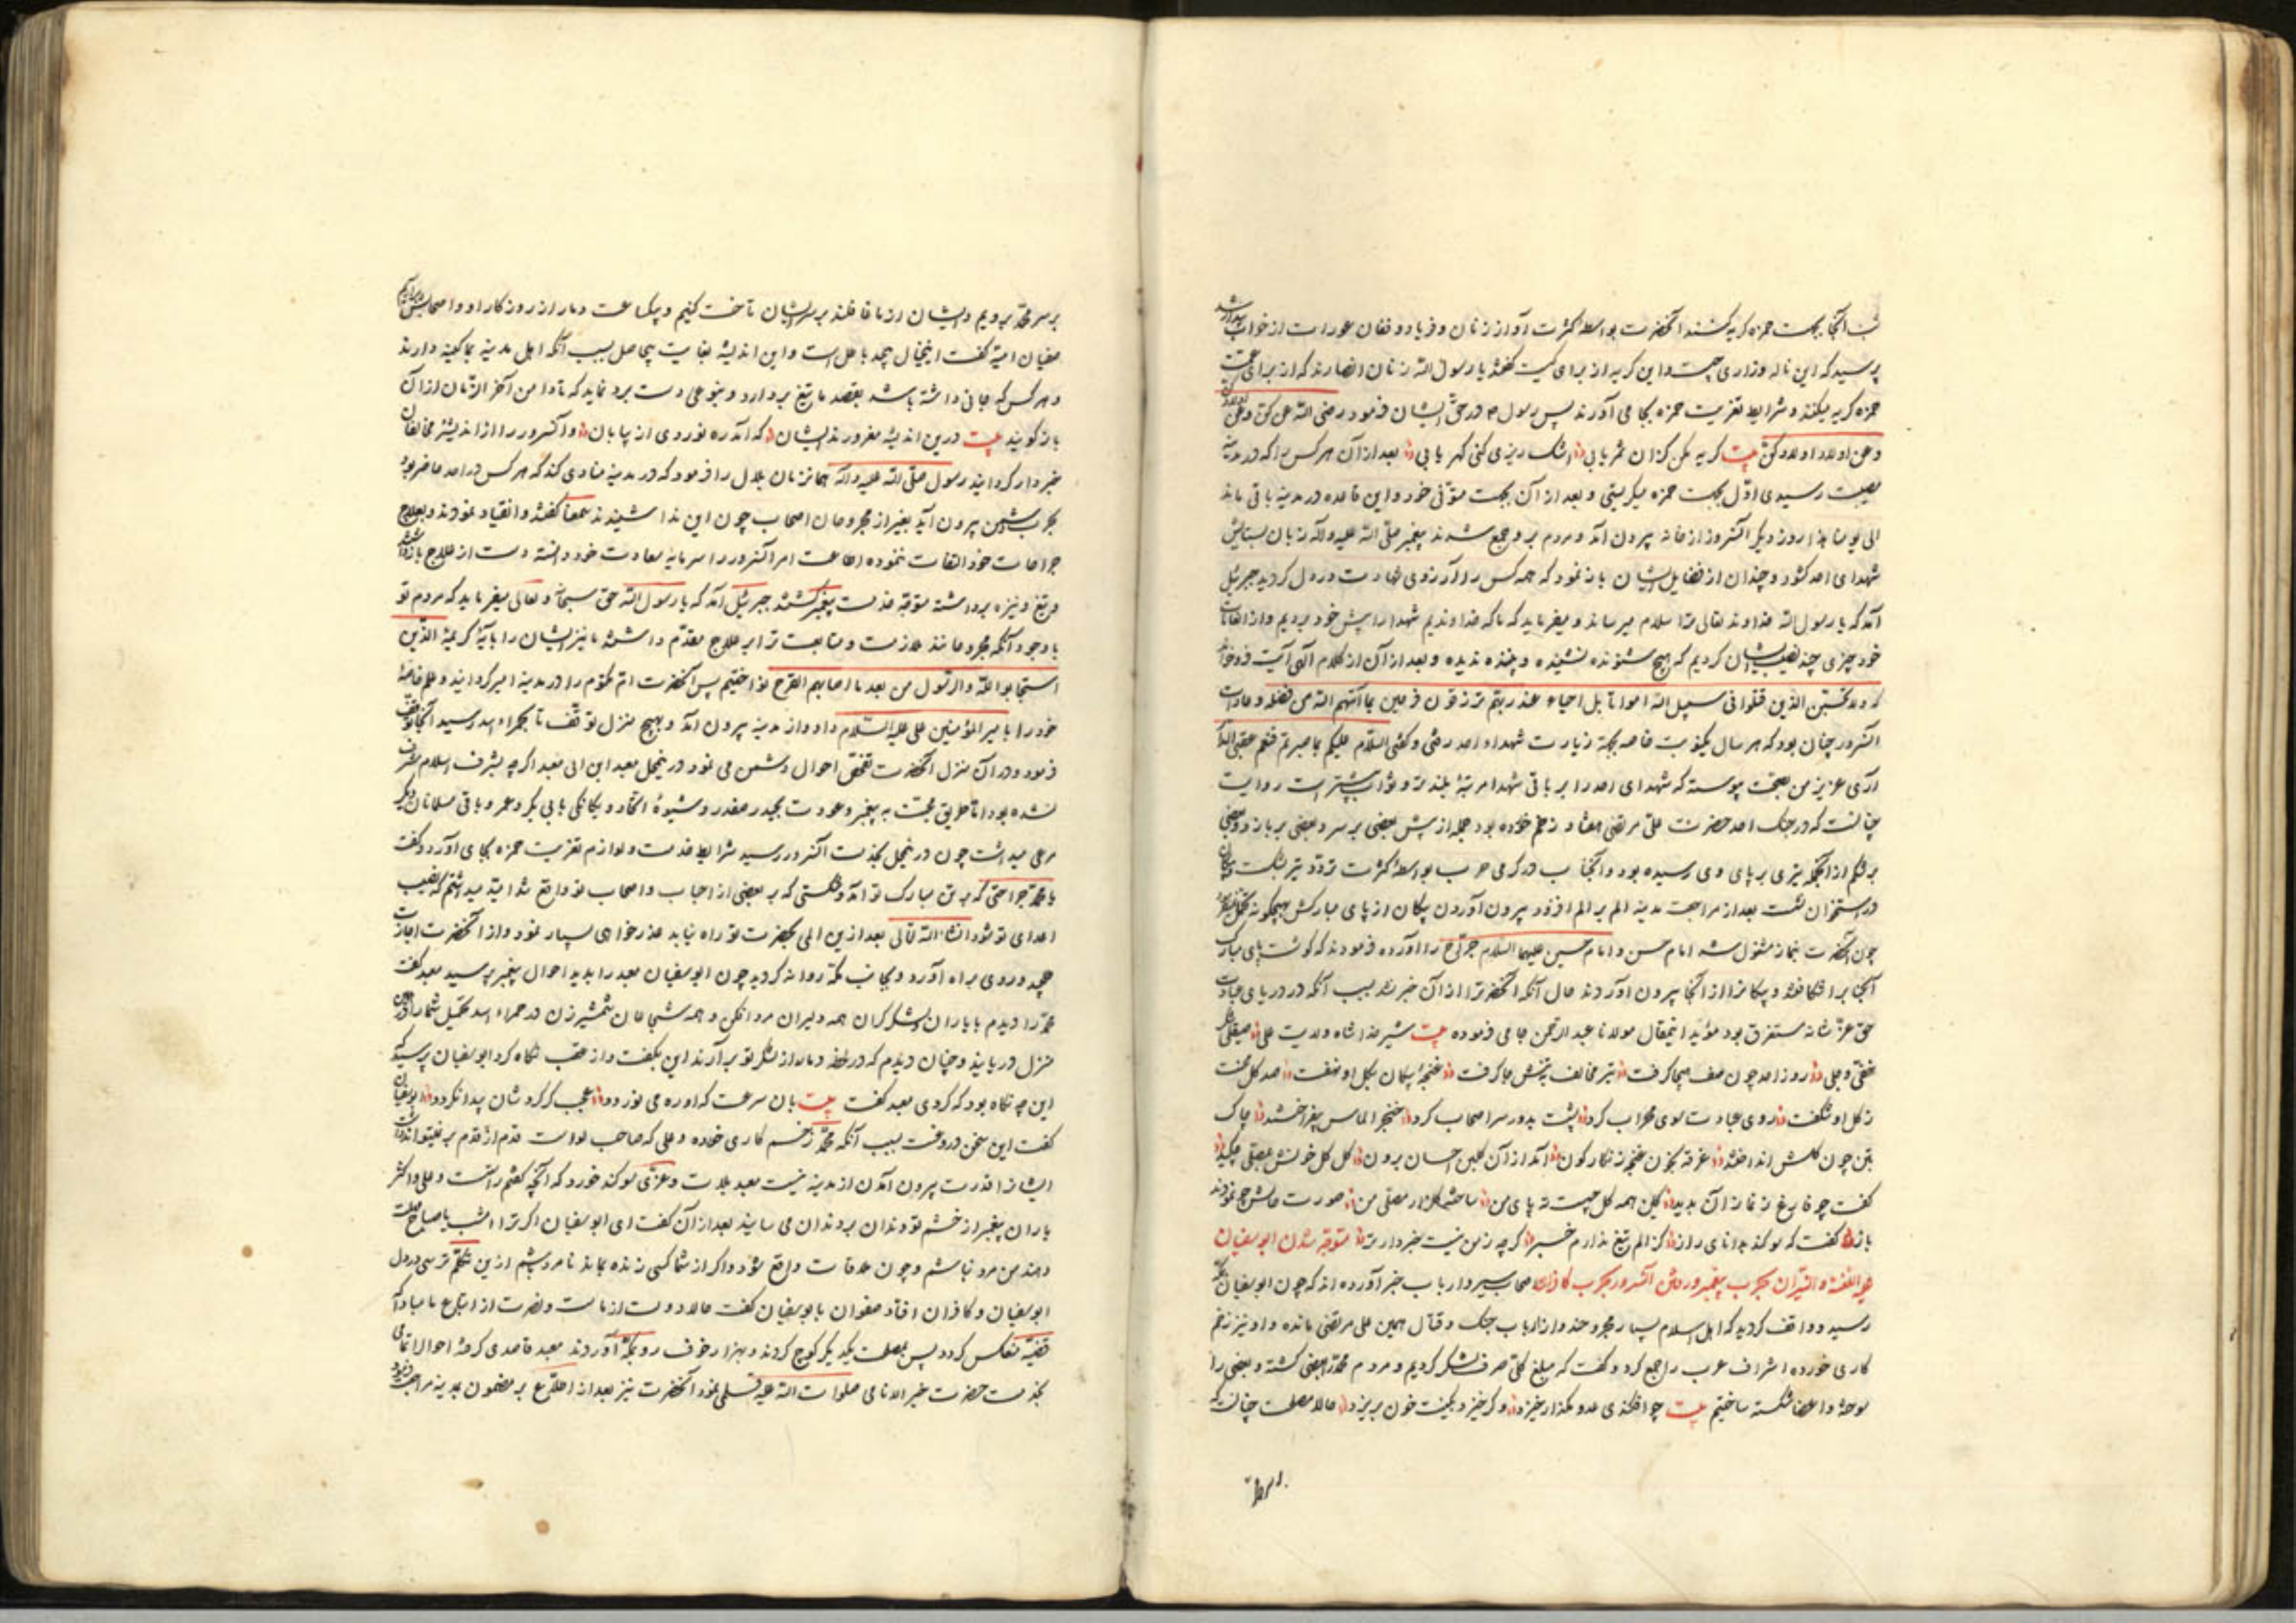 شب آنجا بجهت حمزه گریه کنند آنحضرت بواسطه کثرت آواز زنان و فریاد و فغان عورات از خواب بیدار شد
پرسید که این ناله وزاری چیست و این گریه از برای کیست گفتند یا رسول الله زنان انصارند که از برای عمت
حمزه گریه میکنند و شرایط تعزیت حمزه بجا می آورند پس رسول در حق ایشان فرمود رضی الله عنکن وعن اولادکن
وعن اولاد اولادکن بیت گریه مکن کزان ثمر یابی اشک ریزی کنی گهر یابی بعد از آن هر کس را که در مدینه
مصیبت رسیدی اول بجهت حمزه میگریستی و بعد از آن بجهت متوفی خود و این قاعده در مدینه باقی ماند
الی یومنا هذا روز دیگر آنسرور از خانه بیرون آمد و مردم بر وی جمع شدند پیغمبر صلی الله علیه وآله زبان بستایش
شهدای احد گشود و چندان از فضایل ایشان باز نمود که همه کس را آرزوی شهادت در دل گردید جبرئیل
آمد که یا رسول الله خداوند تعالی ترا سلام میرساند و میفرماید که ما که خداوندیم شهدا را پیش خود بردیم و از الطاف
خود چیزی چند نصیب ایشان کردیم که هیچ شنونده نشنیده و بیننده ندیده و بعد از آن از کلام الهی آیت فرو خواند
که ولا تحسبن الذین قتلوا فی سبیل الله امواتا بل احیاء عند ربهم یرزقون فرحین بما آتیهم الله من فضله و عادت
آنسرور چنان بود که هر سال یکنوبت خاصه بجهة زیارت شهداء احد رفتی و گفتی السلام علیکم بما صبرتم فنعم عقبی الدار
آری عزیز من بصحت پیوسته که شهدای احد را بر باقی شهدا مرتبه بلندتر و ثواب بیشتر است روایت
چنانست که در جنگ احد حضرت علی مرتضی هفتاد زخم خورده بود جمله از پیش بعضی بر سر و بعضی بر بازو و بعضی
بر شکم از آنجمله تیری بر پای وی رسیده بود و آنجناب در گرمی حرب بواسطه کثرت تردد تیر بشکست و پیکان
در استخوان نشست بعد از مراجعت مدینه الم بر الم افزود بیرون آوردن پیکان از پای مبارکش بهیچگونه
چون آنحضرت بنماز مشغول شد امام حسن و امام حسین علیهما السلام جراح را آورده فرمودند که گوشت پای مبارک
آنجناب را شکافتند و پیکانرا از آنجا بیرون آوردند حال آنکه آنحضرت را از آن خبر نشد بسبب آنکه در دریای عبادت
حق عز شانه مستغرق بود مؤید اینمقال مولانا عبد الرحمن جامی فرموده بیت شیر خدا شاه ولایت علی صیقلی شرک
خفی و جلی روز احد چون صف هیجا گرفت تیر مخالف بتنش جا گرفت غنچه پیکان بگل او نهفت صد گل محنت
ز گل او شکفت روی عبادت سوی محراب کرد پشت بدرد سر اصحاب کرد خنجر الماس چو بفراختند چاک
بتن چون گلش انداختند غرقه بخون غنچه زنگارگون آمد از آن گلبن احسان برون گل گل خونش بمصلی چکید
گفت چو فارغ ز نماز آن بدید کاین همه گل چیست ته پای من ساخته گلزار مصلی من صورت حالش چو نمودند
باز گفت که سوگند بدانای راز کز الم تیغ ندارم خبر گرچه ز من نیست خبردارتر متوجه شدن ابوسفیان
علیه اللعنة والنیران بحرب پیغمبر و رفتن آنسرور بحرب کافران اصحاب سیر و ارباب خبر آورده اند که چون ابوسفیان بمکه
رسید و واقف گردید که اهل اسلام بسیار مجروحند و از ارباب جنگ و قتال همین علی مرتضی مانده و او نیز زخم
کاری خورده اشراف عرب را جمع کرد و گفت که مبلغ کلی صرف لشکر کردیم و مردم محمد را بعضی کشته و بعضی را
سوخته و اعضا شکسته ساختیم بیت چو افکندی عدو مگذار خیزد وگر خیزد بکینت خون بریزد حالا مصلحت چنانست که
بر سر
بر سر محمد برویم و ایشان از ما غافلند بر سر ایشان تاخت کنیم و بیکساعت دمار از روزگار او و اصحابش برآریم
صفوان امیه گفت اینخیال بیحد باطل است و این اندیشه بغایت بیحاصل بسبب آنکه اهل مدینه بما کینه دارند
و هر کس که جانی داشته باشد بقصد ما تیغ بردارد و بنوعی دست برد نماید که تا دامن آخر الزمان از آن
باز گویند بیت درین اندیشه مغرورند ایشان که آمد ره نوردی از بیابان و آنسرور را از اندیشه مخالفان
خبردار گردانید رسول صلی الله علیه وآله همانزمان بلال را فرمود که در مدینه منادی کند که هر کس در احد حاضر بود
بحرب دشمن بیرون آید بغیر از مجروحان اصحاب چون این ندا شنیدند سمعاً گفتند و انقیاد نمودند و بعلاج
جراحات خود التفات ننموده اطاعت امر آنسرور را سرمایه سعادت خود دانسته دست از علاج باز داشتند
و تیغ و نیزه برداشته متوجه خدمت پیغمبر گشتند جبرئیل آمد که یا رسول الله حق سبحانه و تعالی میفرماید که مردم تو
با وجود آنکه مجروحانند ملازمت و متابعت ترا بر علاج مقدم داشتند ما نیز ایشان را بآیه کریمه الذین
استجابوا لله والرسول من بعد ما اصابهم القرح نواختیم پس آنحضرت ام مکتوم را در مدینه امیر گردانید و علم خاصه
خود را با میر المؤمنین علی علیه السلام داد و از مدینه بیرون آمد و بهیچ منزل توقف تا بحمراء اسد رسید آنجا توقف
فرمود و در آن منزل آنحضرت تفحص احوال دشمن می نمود درینمحل معبد ابن ابی معبد اگرچه بشرف اسلام مشرف
نشده بود اما طریق محبت به پیغمبر و عودت بحیدر صفدر و شیوه اتحاد و یگانگی با بی بکر و عمر و باقی مسلمانان دیگر
مرعی میداشت چون درینمحل بخدمت آنسرور رسید شرایط خدمت و لوازم تعزیت حمزه بجای آورد و گفت
یا محمد جراحتی که بر تن مبارک تو آمد و شکستی که بر بعضی از احباب و اصحاب تو واقع شد امید میداشتم که نصیب
اعدای تو شود انشاء الله تعالی بعد ازین المی بحضرت تو راه نیابد عذر خواهی بسیار نمود و از آنحضرت اجازت
جهد و روی براه آورد و بجانب مکه روانه گردید چون ابوسفیان معبد را بدید احوال پیغمبر پرسید معبد گفت
محمد را دیدم با یاران و لشکرگران همه دلیران مرد افکن و همه شجاعان شمشیر زن در حمراء اسد
منزل دریابند و چنان دیدم که در لحظه دمار از لشکر تو برآرند این بگفت و از عقب نگاه کرد ابوسفیان پرسید که
این چه نگاه بود که کردی معبد گفت بیت بان سرعت که او ره می نوردد عجب گر گردشان پیدا نگردد ابوسفیان
گفت این سخن دروغست بسبب آنکه محمد زخم کاری خورده و علی که صاحب لواست قدم از قدم بر نمیتواند داشت
ایشانرا قدرت بیرون آمدن از مدینه نیست معبد بلات و عزی سوگند خورد که آنچه گفتم راست و علی و اکثر
یاران پیغمبر از خشم تو دندان بر دندان می سایند بعد از آن گفت ای ابوسفیان اگر ترا امشب یا صباح مهلت
دهند من مرد نباشم و چون ملاقات واقع شود و اگر از شما کسی زنده بماند نامرد باشم ازین تکلم ترسی در دل
ابوسفیان و کافران افتاد صفوان با بوسفیان گفت حالا دولت از ماست و نصرت از اتباع ما مبادا که
قضیه منعکس گردد پس بمصلحت یکدیگر کوچ کردند و بهزار خوف رو بمکه آوردند معبد قاصدی کرده احوالات تمامی
بخدمت حضرت خیر الانامی صلوات الله علیه وسلم نمود آنحضرت نیز بعد از اطلاع بر مضمون بمدینه مراجعت فرمود